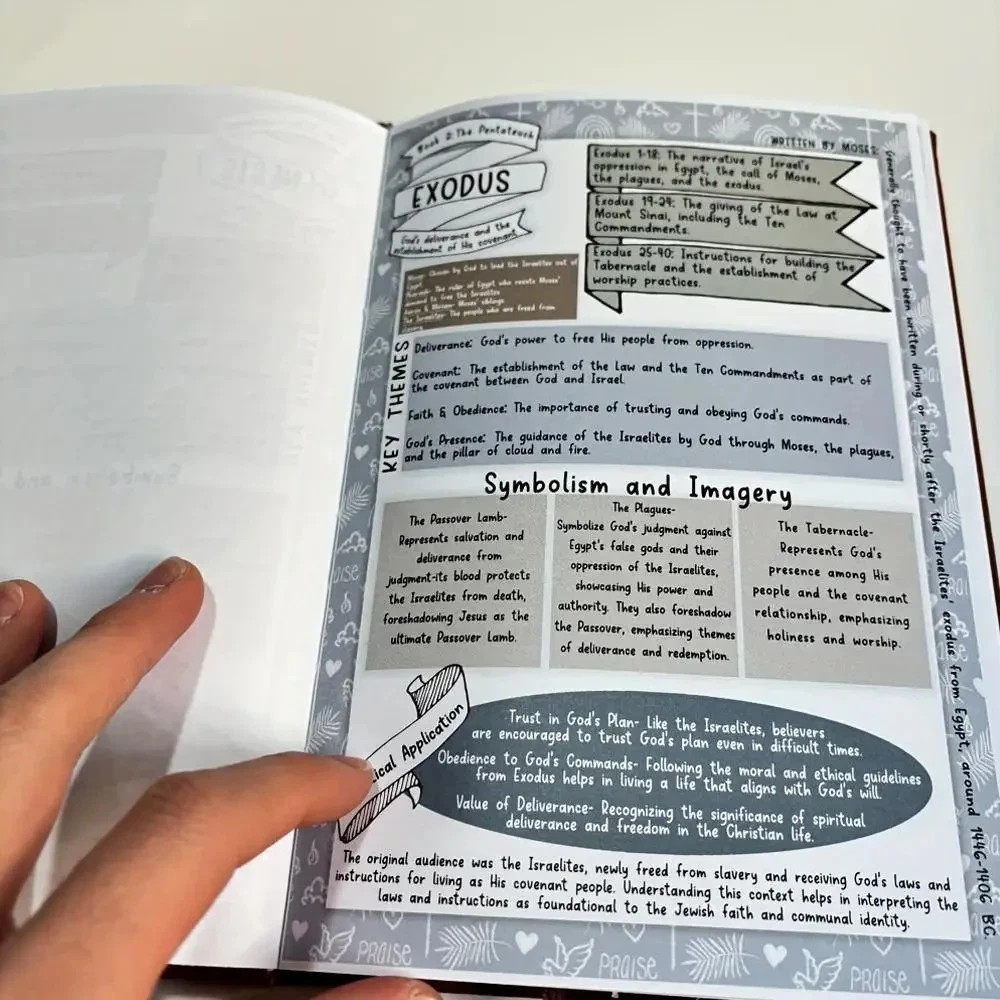 Book 2: The Pentateuch
EXODUS
God's deliverance and the
establishment of His covenant
WRITTEN BY MOSES:
Generally thought to have been written during or shortly after the Israelites' exodus from Egypt, around 1446-1406 BC.
Exodus 1-18: The narrative of Israel's
oppression in Egypt, the call of Moses,
the plagues, and the exodus.
Exodus 19-24: The giving of the Law at
Mount Sinai, including the Ten
Commandments.
Exodus 25-40: Instructions for building the
Tabernacle and the establishment of
worship practices.
Moses: Chosen by God to lead the Israelites out of
Egypt
Pharaoh: The ruler of Egypt who resists Moses'
demand to free the Israelites
Aaron & Miriam: Moses' siblings
The Israelites: The people who are freed from
slavery
KEY THEMES
Deliverance: God's power to free His people from oppression.
Covenant: The establishment of the Law and the Ten Commandments as part of
the covenant between God and Israel.
Faith & Obedience: The importance of trusting and obeying God's commands.
God's Presence: The guidance of the Israelites by God through Moses, the plagues,
and the pillar of cloud and fire.
Symbolism and Imagery
The Passover Lamb-
Represents salvation and
deliverance from
judgment-its blood protects
the Israelites from death,
foreshadowing Jesus as the
ultimate Passover Lamb.
The Plagues-
Symbolize God's judgment against
Egypt's false gods and their
oppression of the Israelites,
showcasing His power and
authority. They also foreshadow
the Passover, emphasizing themes
of deliverance and redemption.
The Tabernacle-
Represents God's
presence among His
people and the covenant
relationship, emphasizing
holiness and worship.
Application
Trust in God's Plan- Like the Israelites, believers
are encouraged to trust God's plan even in difficult times.
Obedience to God's Commands- Following the moral and ethical guidelines
from Exodus helps in living a life that aligns with God's will.
Value of Deliverance- Recognizing the significance of spiritual
deliverance and freedom in the Christian life.
The original audience was the Israelites, newly freed from slavery and receiving God's laws and
instructions for living as His covenant people. Understanding this context helps in interpreting the
laws and instructions as foundational to the Jewish faith and communal identity.
PRAISE
PRAISE
PRAISE